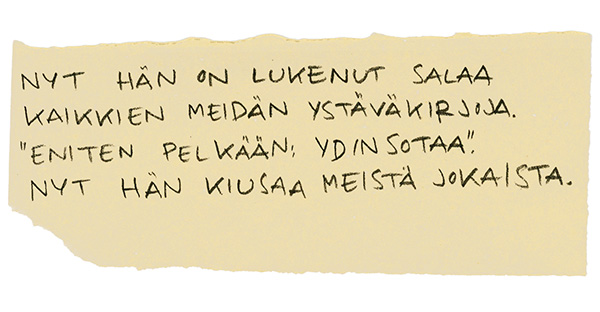 NYT HÄN ON LUKENUT SALAA
KAIKKIEN MEIDÄN YSTÄVÄKIRJOJA.
"ENITEN PELKÄÄN: YDINSOTAA".
NYT HÄN KIUSAA MEISTÄ JOKAISTA.